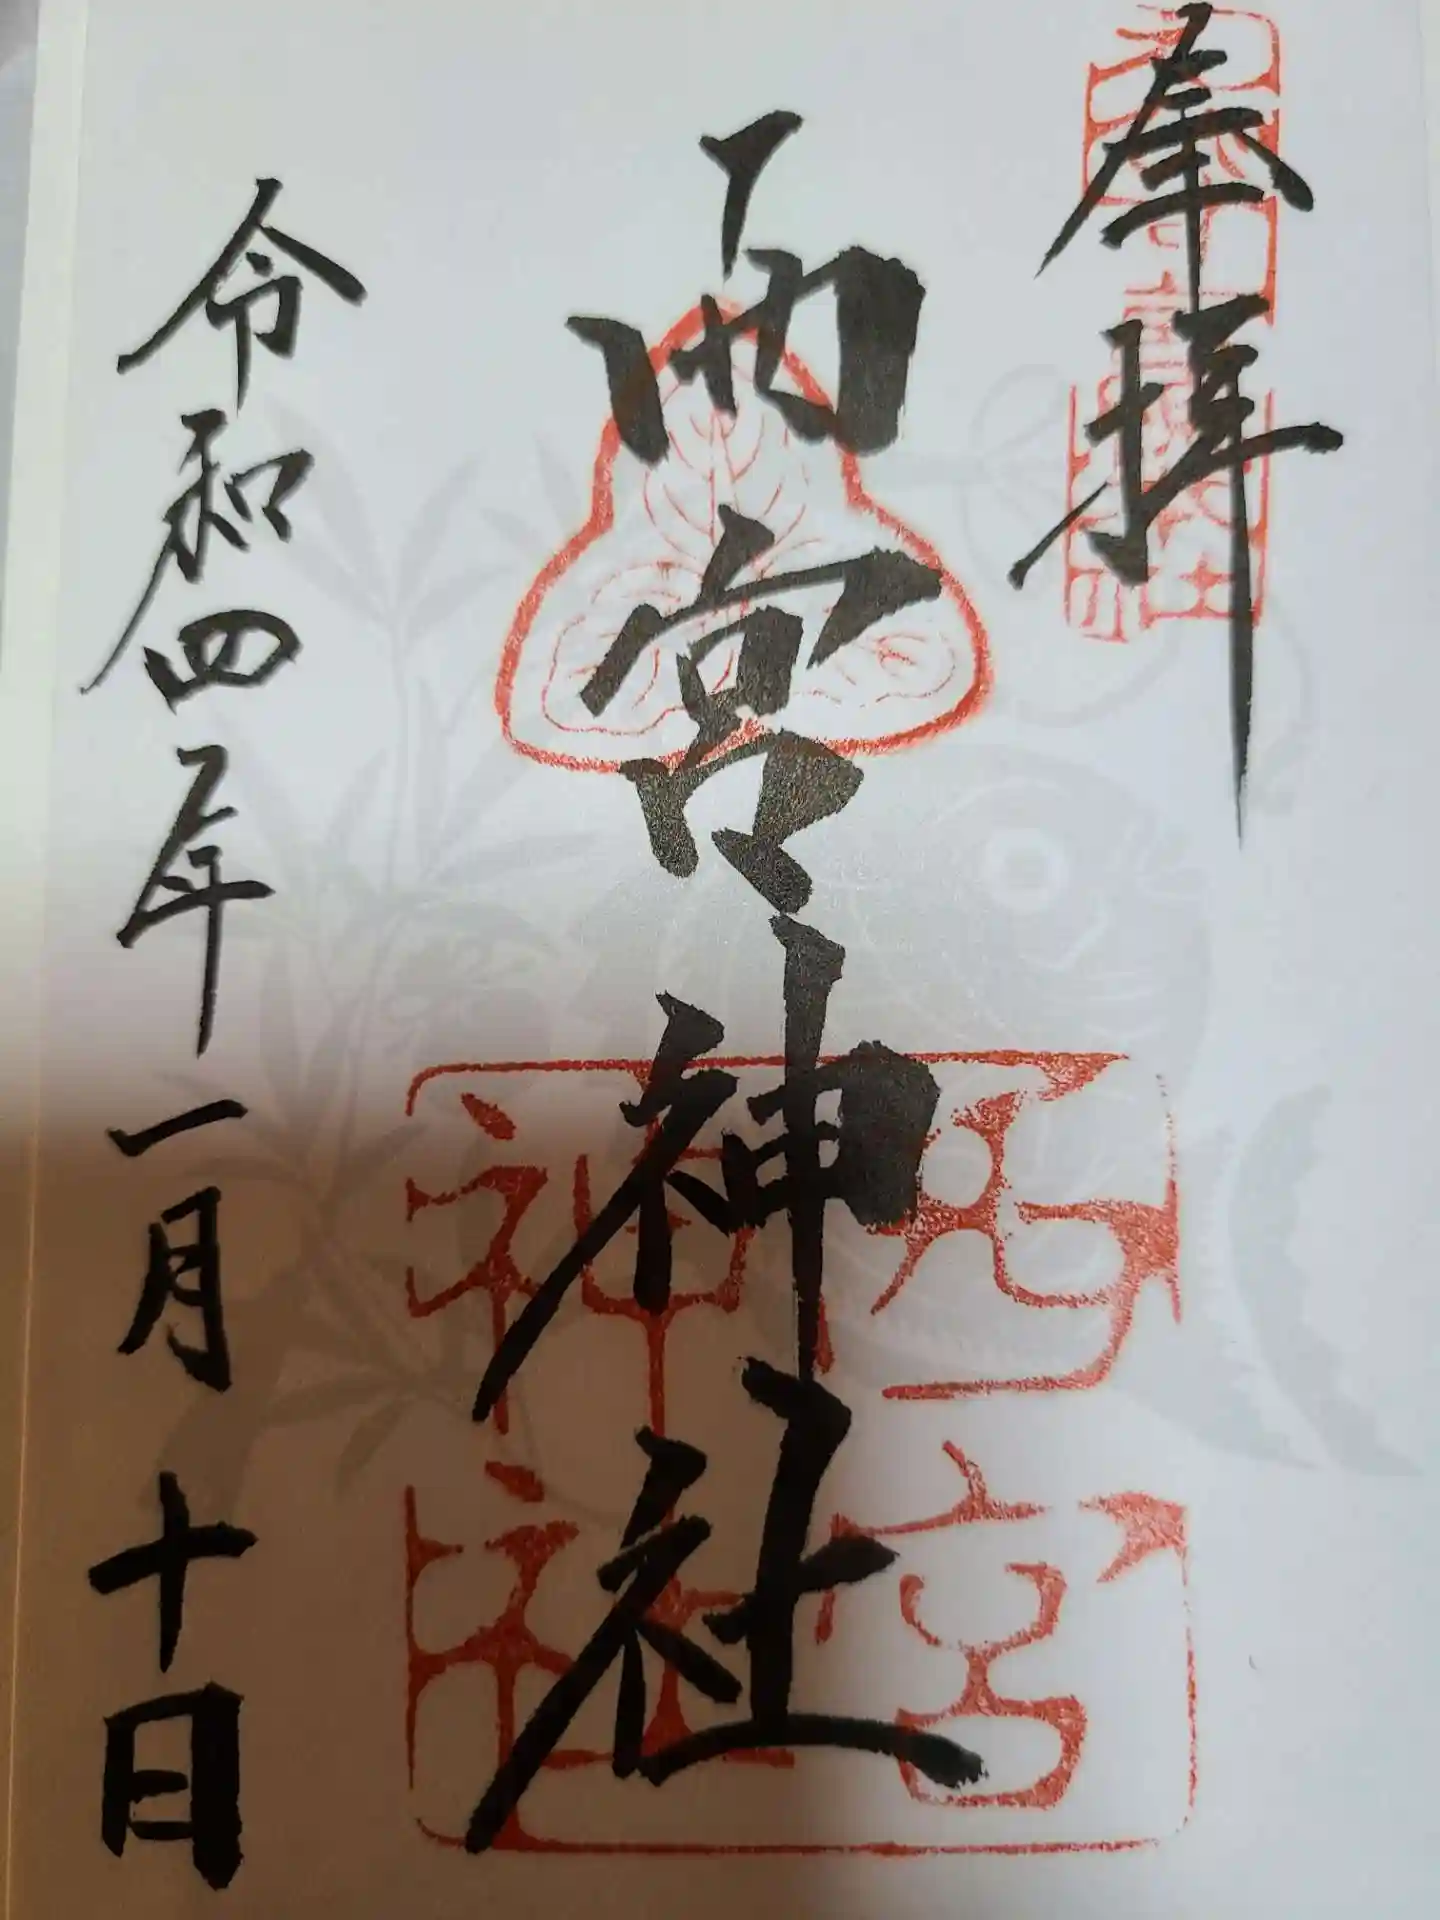 奉拝
西宮神社
令和四年一月十日
西宮
神社